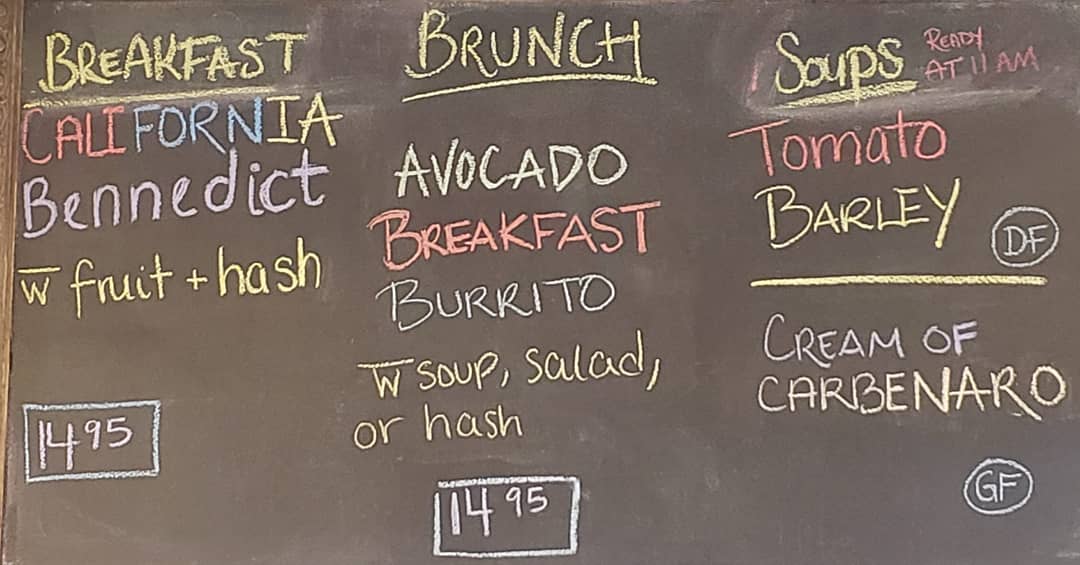 BREAKFAST
CALIFORNIA
Bennedict
w fruit + hash
14 95
BRUNCH
AVOCADO
BREAKFAST
BURRITO
w soup, salad,
or hash
14 95
Soups
READY
AT 11 AM
Tomato
BARLEY
DF
CREAM OF
CARBENARO
GF